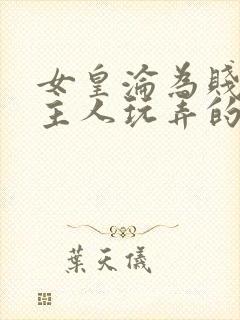 女皇淪為賤
主人玩弄的
葉天儀